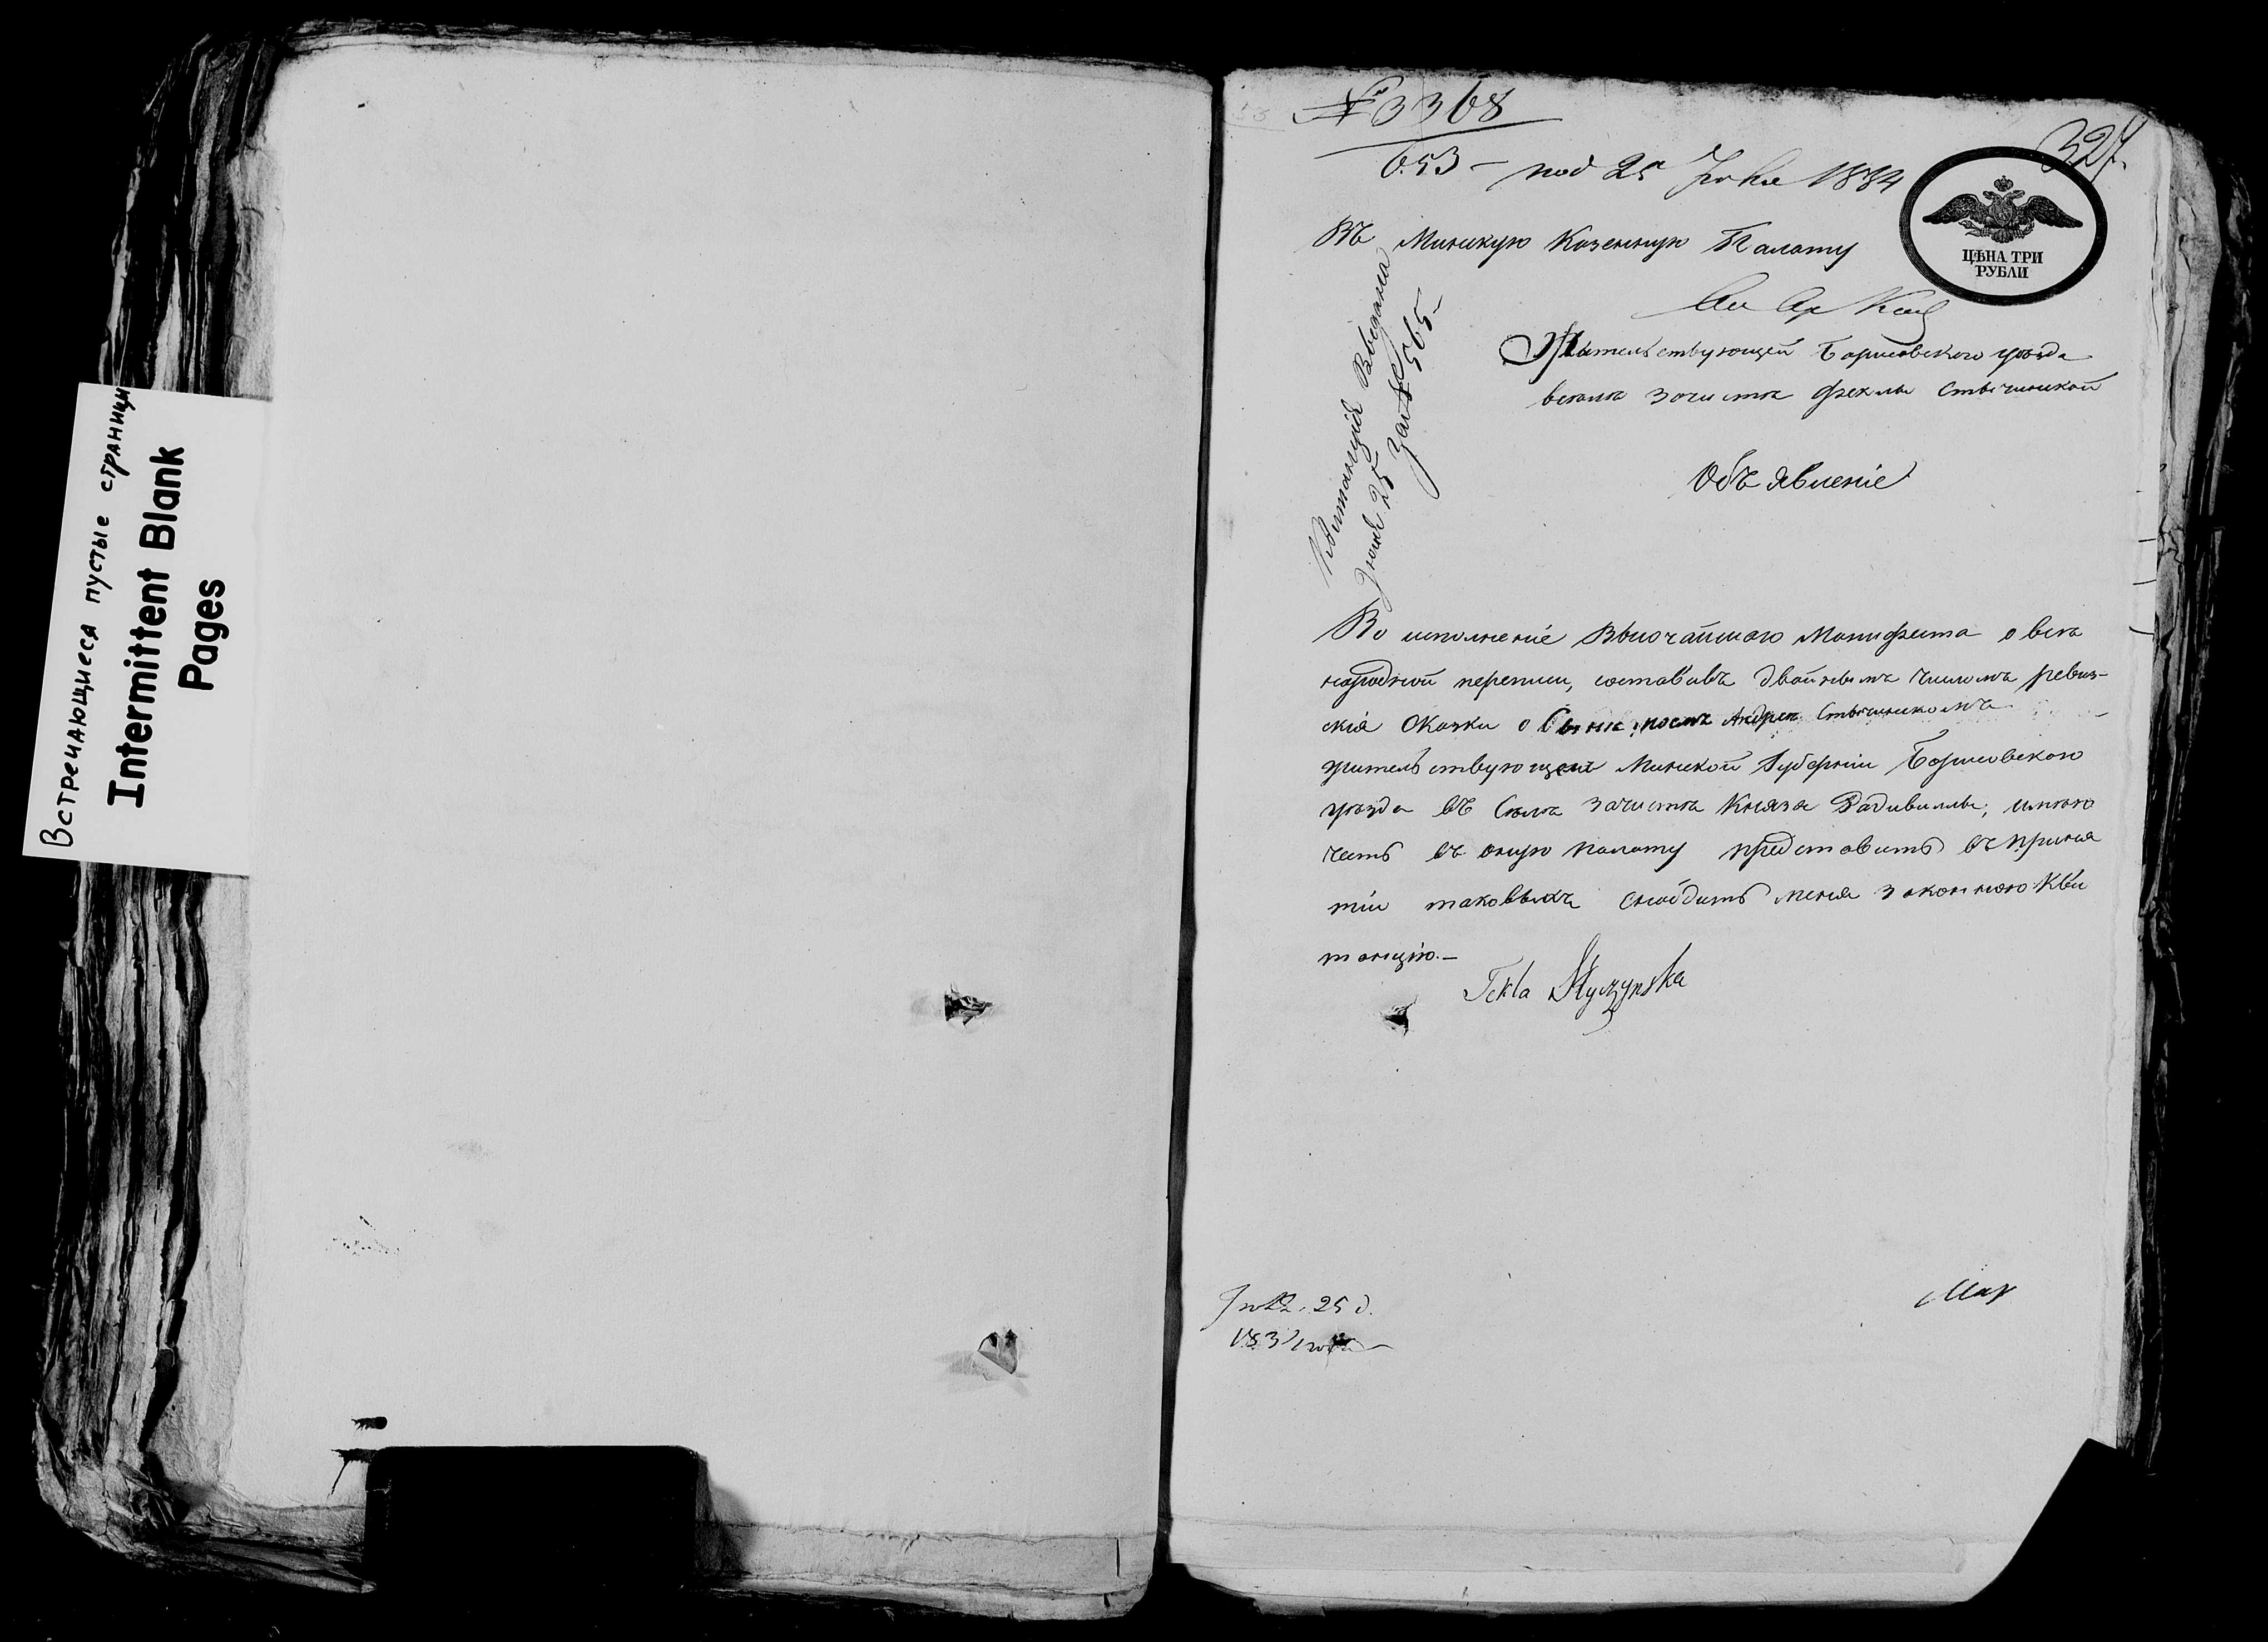 Встречающиеся пустые страницы
Intermittent Blank
Pages
№ 3368
653 - под 25 Июня 1834
327.
Въ Минскую Казенную Палату
ЦѢНА ТРИ
РУБЛИ
Жительствующей Борисовскаго уѣзда
Зачистѣ Феклы Стычинской
Объявленіе
Квитанція Выдана
Іюня 25 за № 565-
Во исполненіе Высочайшаго Манифеста о все
народной переписи, составивъ двойнымъ числомъ ревиз-
скія Сказки о Сынѣ моемъ Андреѣ Стычинскомъ
жительствующемъ Минской Губерніи Борисовскаго
уѣзда въ Селѣ Зачистѣ Князя Радивиллы, имѣю
честь въ оную палату представить въ приня
тіи таковыхъ снабдить меня законною Кви
танцію.-
Tekla Styczynska
25 д.
1834 года